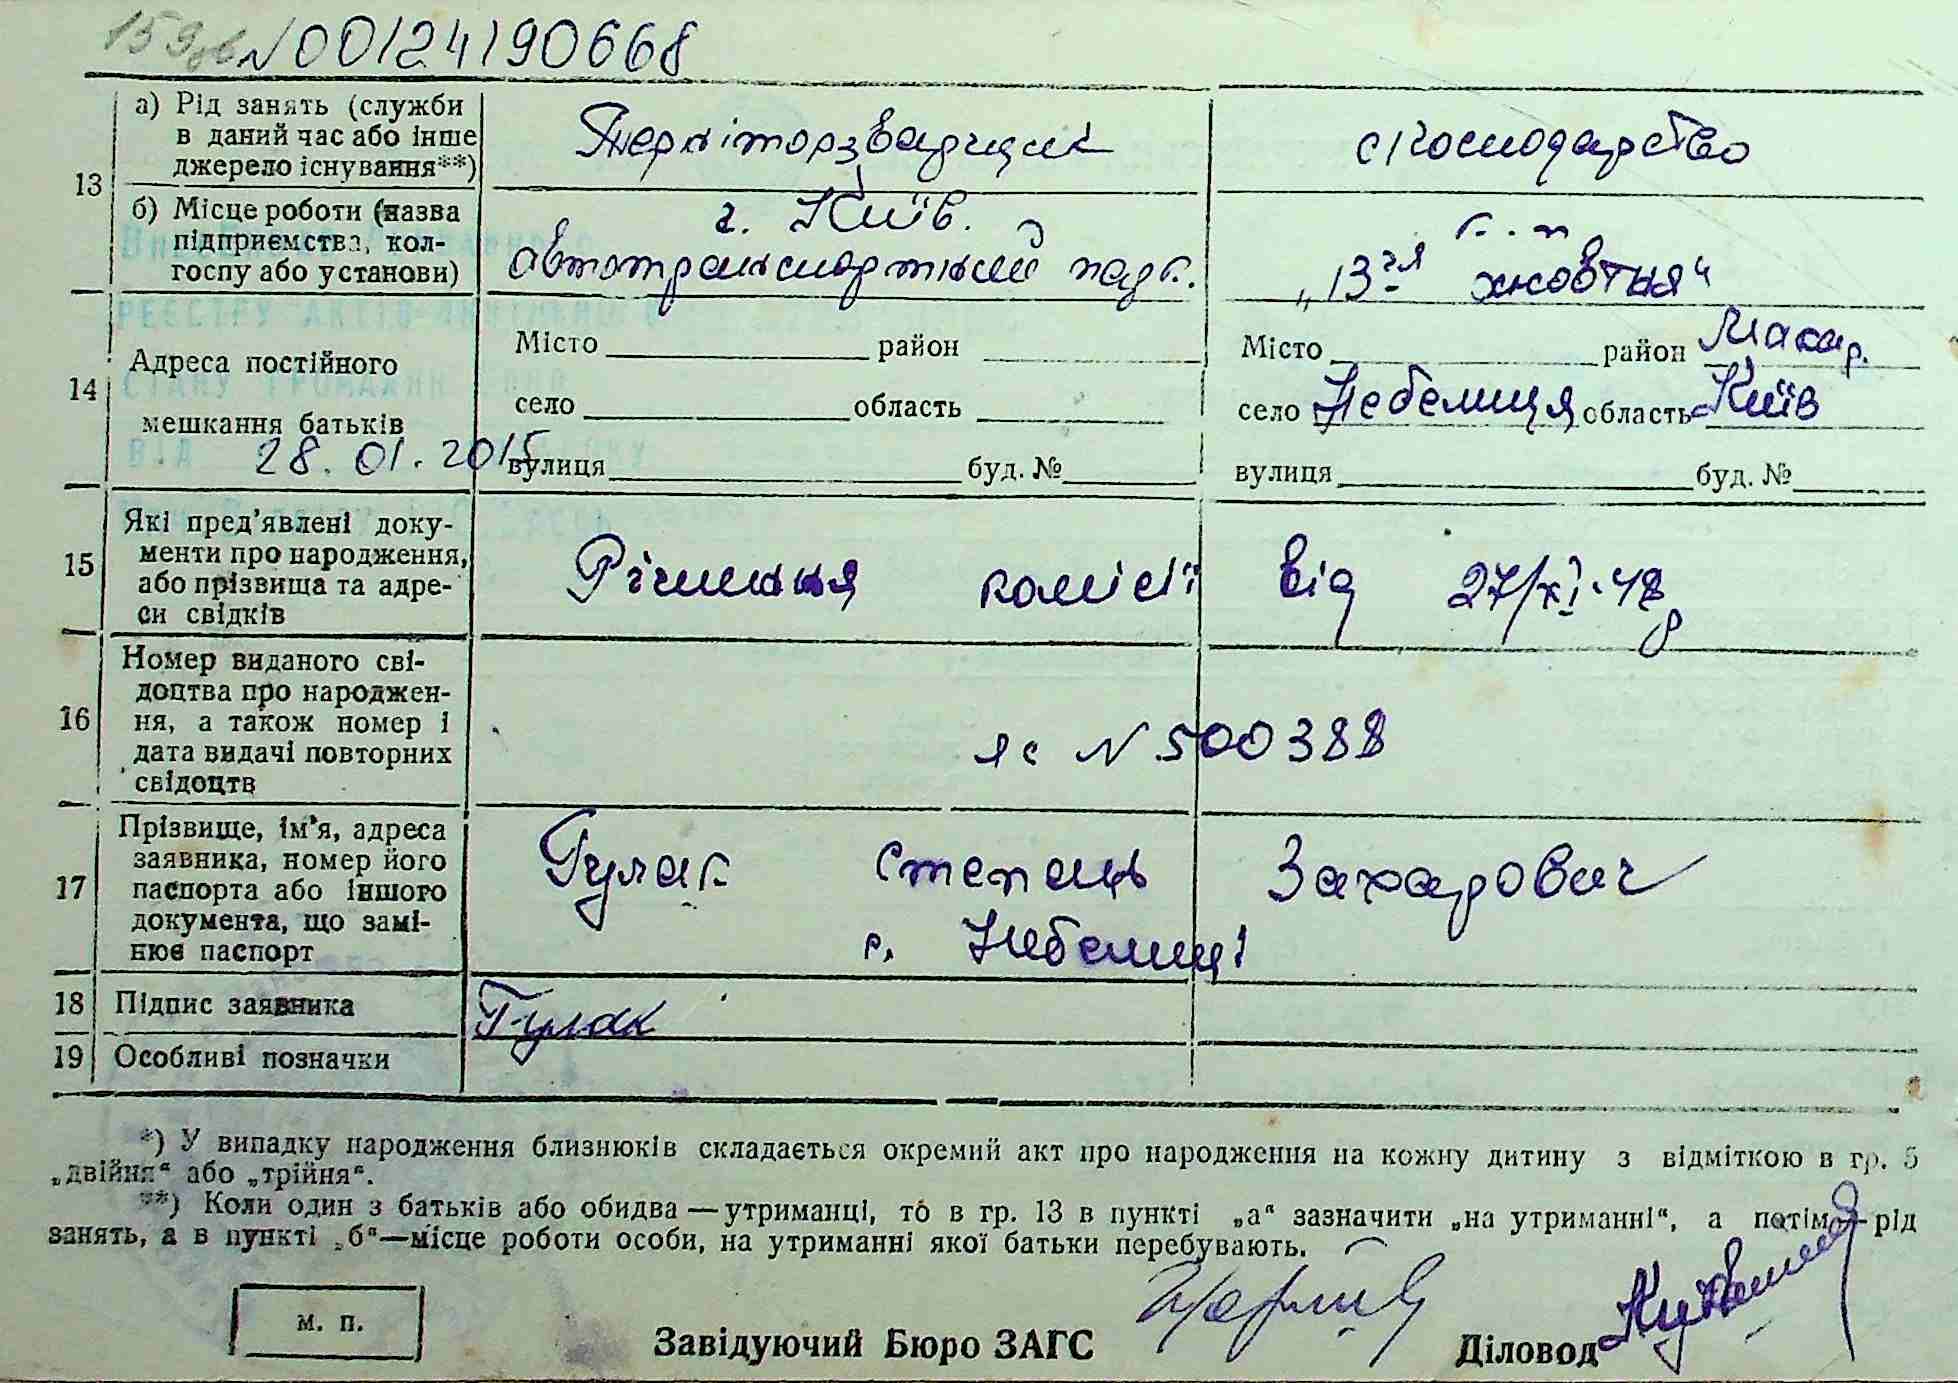 N00124190668
13
а) Рід занять (служби
в даний час або інше
джерело існування**)
с/господарство
б) Місце роботи (назва
підприємства, кол-
госпу або установи)
г. Київ.
автотранспортный парк.
к-п
„13-я жовтня“
14
Адреса постійного
мешкання батьків
Місто район
село область
вулиця буд. №
Місто район Макар.
село Небелиця область Київ
вулиця буд. №
РЕЄСТРУ АКТІВ
СТАНУ ГРОМАДЯН
ВІД 28.01.2015
15
Які пред’явлені доку-
менти про народження,
або прізвища та адре-
си свідків
Рішення комісії від 27/XI-48р
16
Номер виданого сві-
доцтва про народжен-
ня, а також номер і
дата видачі повторних
свідоцтв
яс N 500388
17
Прізвище, ім’я, адреса
заявника, номер його
паспорта або іншого
документа, що замі-
нює паспорт
Гулак Степань Захарович
с. Небелиці
18 Підпис заявника Гулак
19 Особливі позначки
*) У випадку народження близнюків складається окремий акт про народження на кожну дитину з відміткою в гр. 5
„двійня“ або „трійня“.
**) Коли один з батьків або обидва — утриманці, то в гр. 13 в пункті „а“ зазначити „на утриманні“, а потім — рід
занять, а в пункті „б“—місце роботи особи, на утриманні якої батьки перебувають.
м. п.
Завідуючий Бюро ЗАГС
Діловод